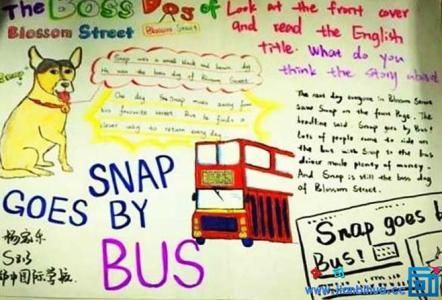 The Boss Dog of
Blossom Street
Blossom Street
Look at the front cover
and read the English
title. What do you
think the story about
Snap
Snap was a small black and brown dog
He was the boss dog of Blossom Street
One day the Snap moves away from
his favourite street. But he finds a
clever way to return every day
The next day everyone in Blossom Street
Saw Snap on the front Page. The
headline said Snap goes by Bus!
lots of people came to ride on
the bus with Snap so the bus
driver made plenty of money.
And Snap is still the boss dog
of Blossom Street.
SNAP
GOES BY
BUS
Snap goes b
Bus!
杨宏乐
华中国际学校